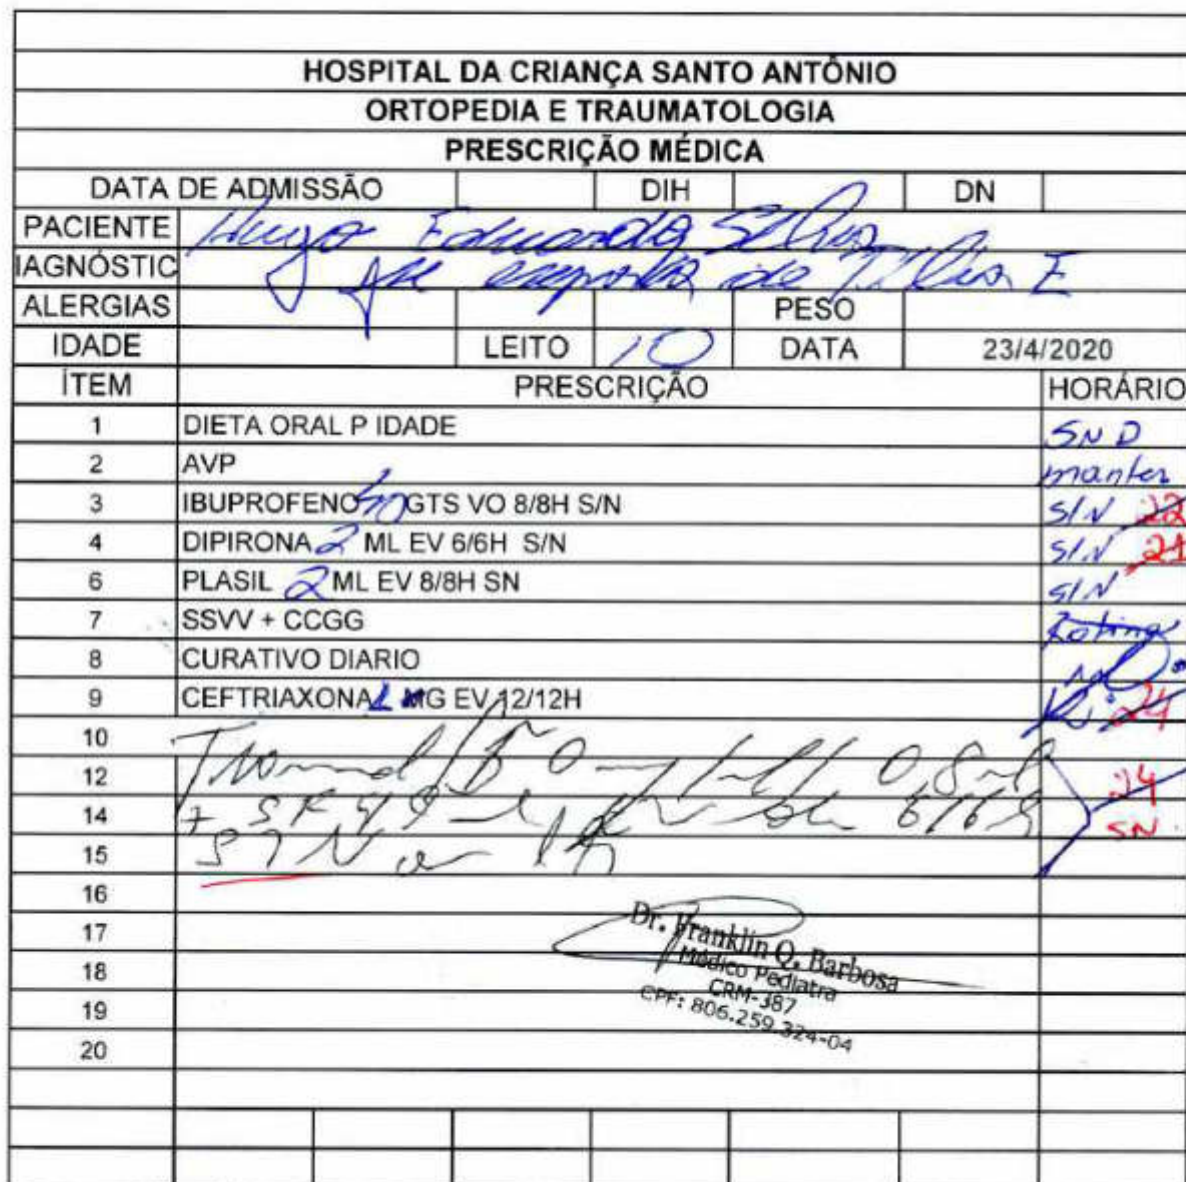 HOSPITAL DA CRIANÇA SANTO ANTÔNIO
ORTOPEDIA E TRAUMATOLOGIA
PRESCRIÇÃO MÉDICA
DATA DE ADMISSÃO DIH DN
PACIENTE Hugo Eduardo Silva
IAGNÓSTIC de E
ALERGIAS PESO
IDADE LEITO 10 DATA 23/4/2020
ÍTEM PRESCRIÇÃO HORÁRIO
1 DIETA ORAL P IDADE SND
2 AVP manter
3 IBUPROFENO GTS VO 8/8H S/N S/N 22
4 DIPIRONA 2 ML EV 6/6H S/N S/N 21
6 PLASIL 2 ML EV 8/8H SN S/N
7 SSVV + CCGG Rotina
8 CURATIVO DIARIO
9 CEFTRIAXONA MG EV 12/12H 24
10
12 24
14 + SF 6/6h SN
15 S/N
16
17
18
19
20
Dr. Franklin Q. Barbosa
Médico Pediatra
CRM-387
CPF: 806.259.324-04